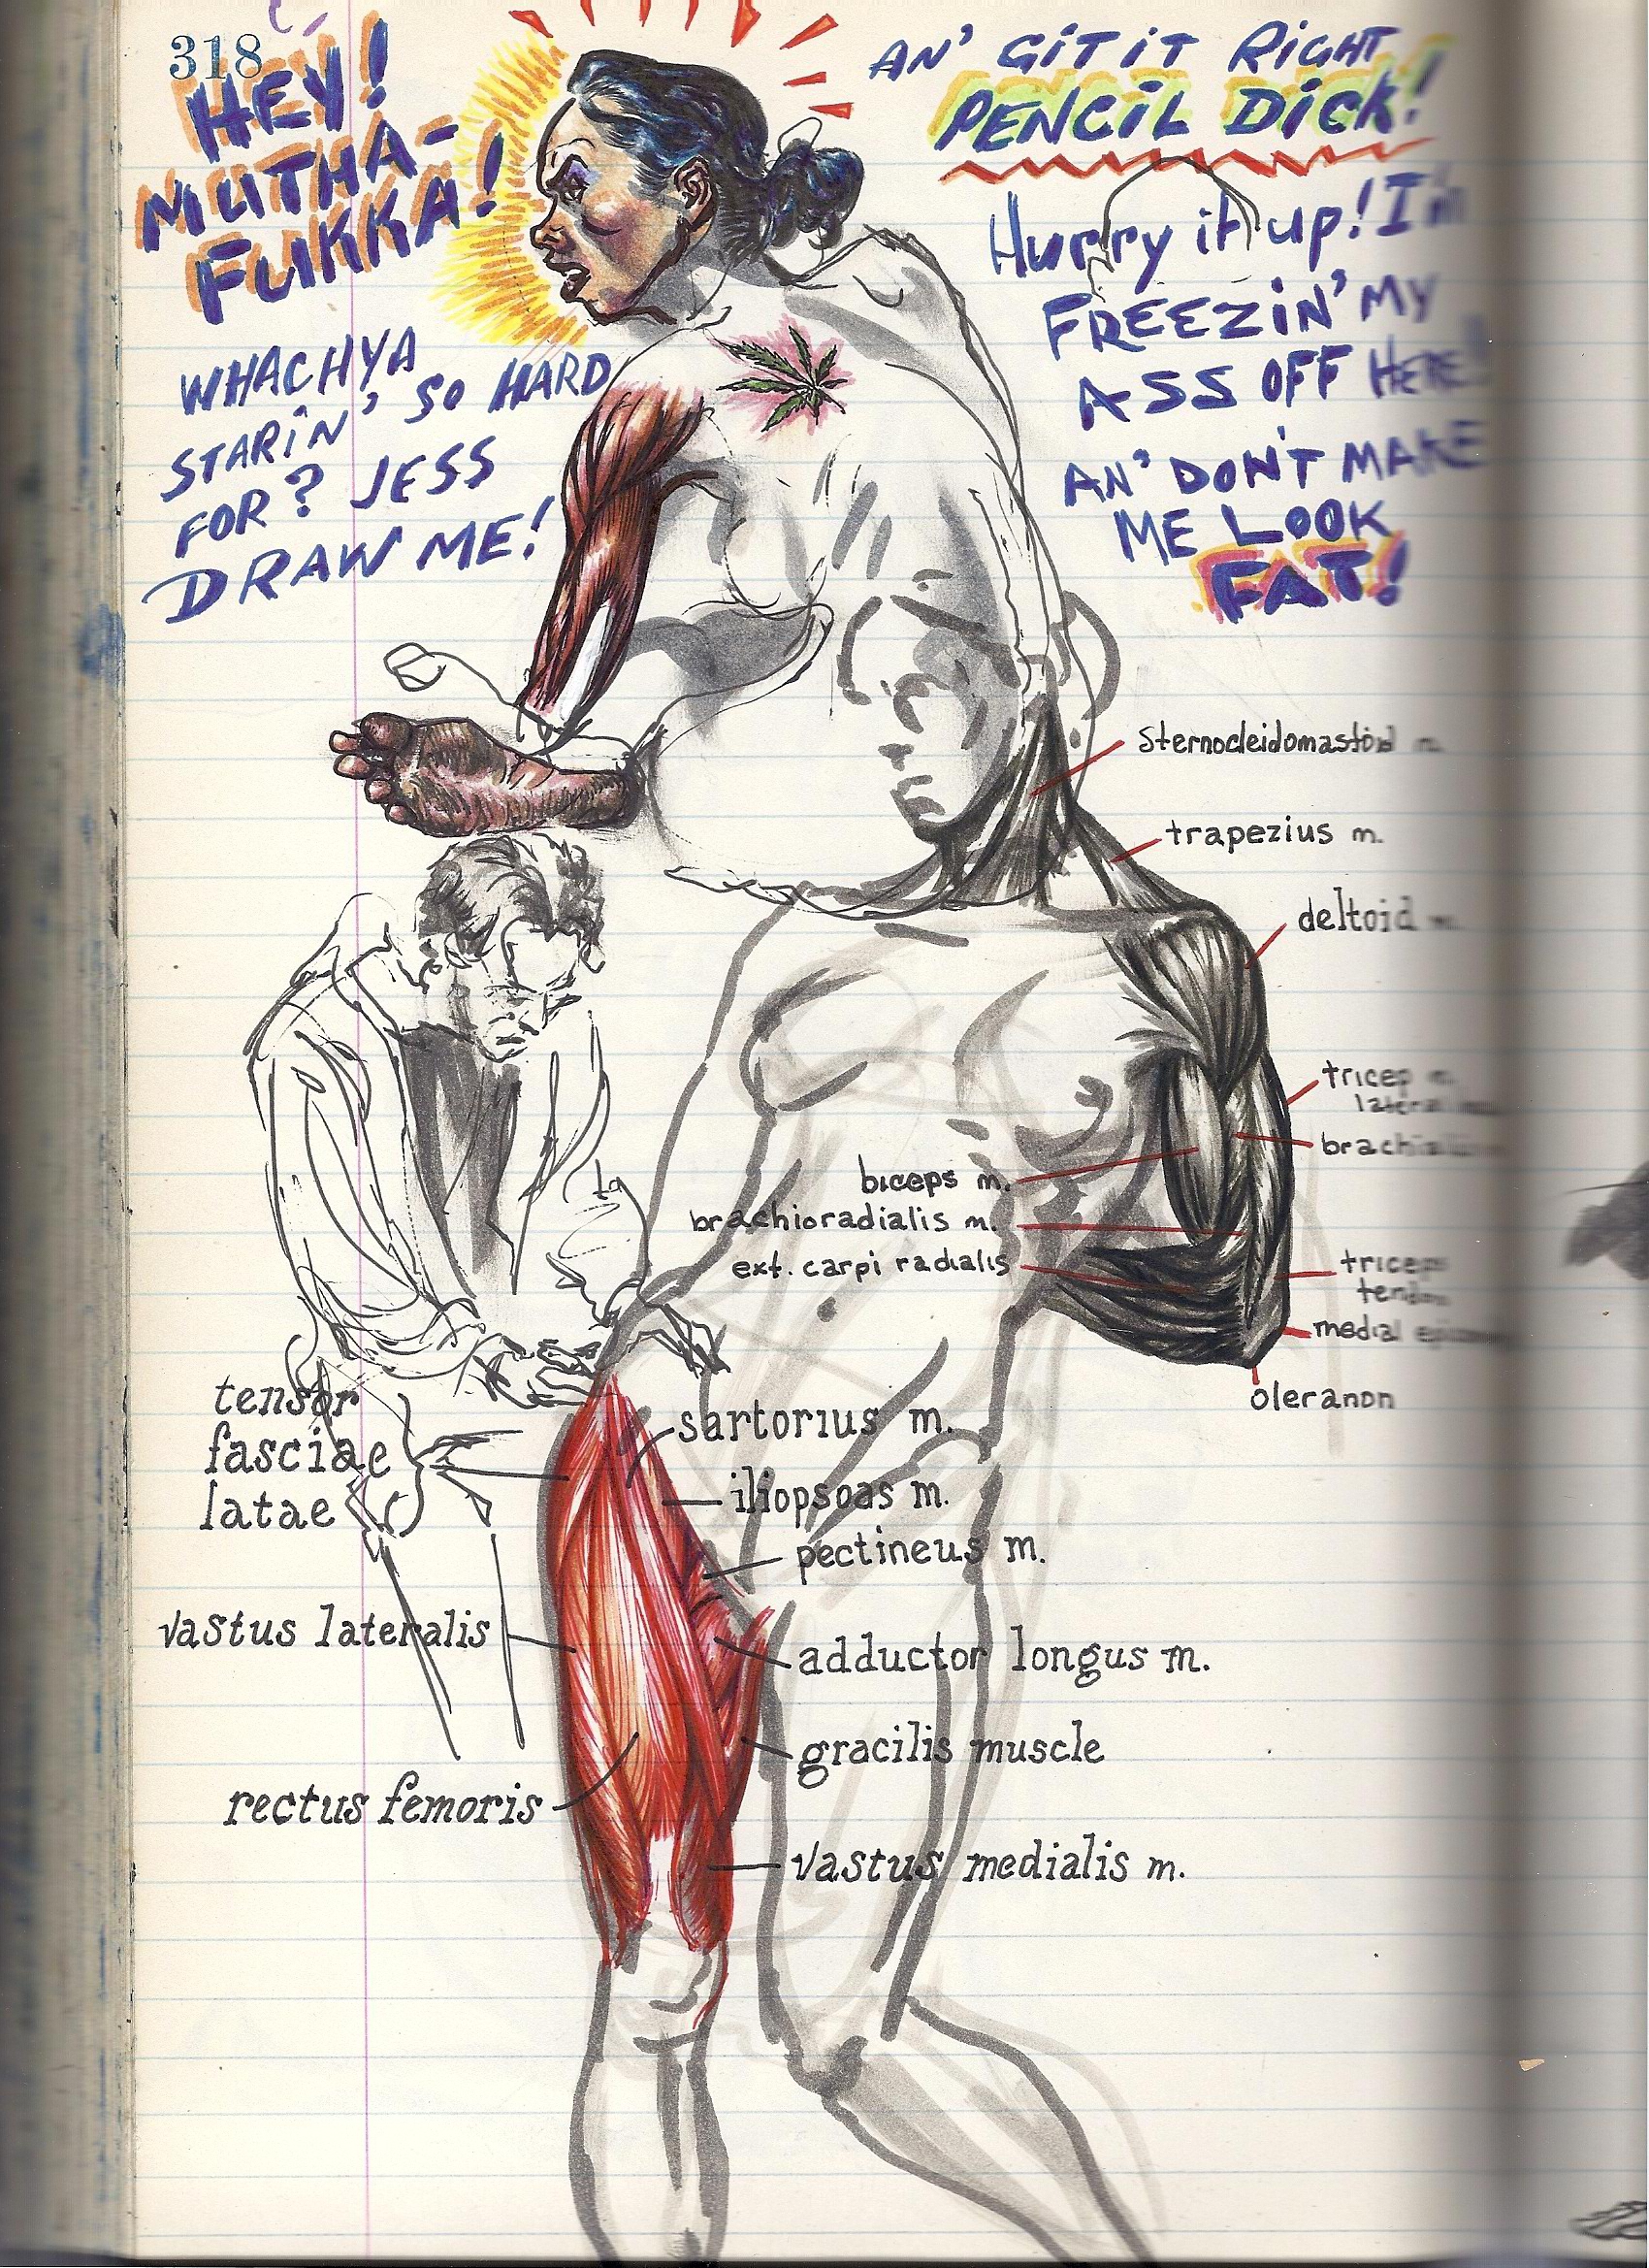 318
HEY!
MUTHA-
FUKKA!
WHACHYA
STARIN' SO HARD
FOR? JESS
DRAW ME!
AN' GIT IT RIGHT
PENCIL DICK!
Hurry it up! I'm
FREEZIN' MY
ASS OFF HERE!
AN' DON'T MAKE
ME LOOK
FAT!
Sternocleidomastoid m.
trapezius m.
deltoid m.
tricep m.
lateral
biceps m.
brachioradialis m.
ext. carpi radialis
triceps
tendon
medial
oleranon
tensor
fasciae
latae
sartorius m.
iliopsoas m.
pectineus m.
vastus lateralis
adductor longus m.
gracilis muscle
rectus femoris
vastus medialis m.